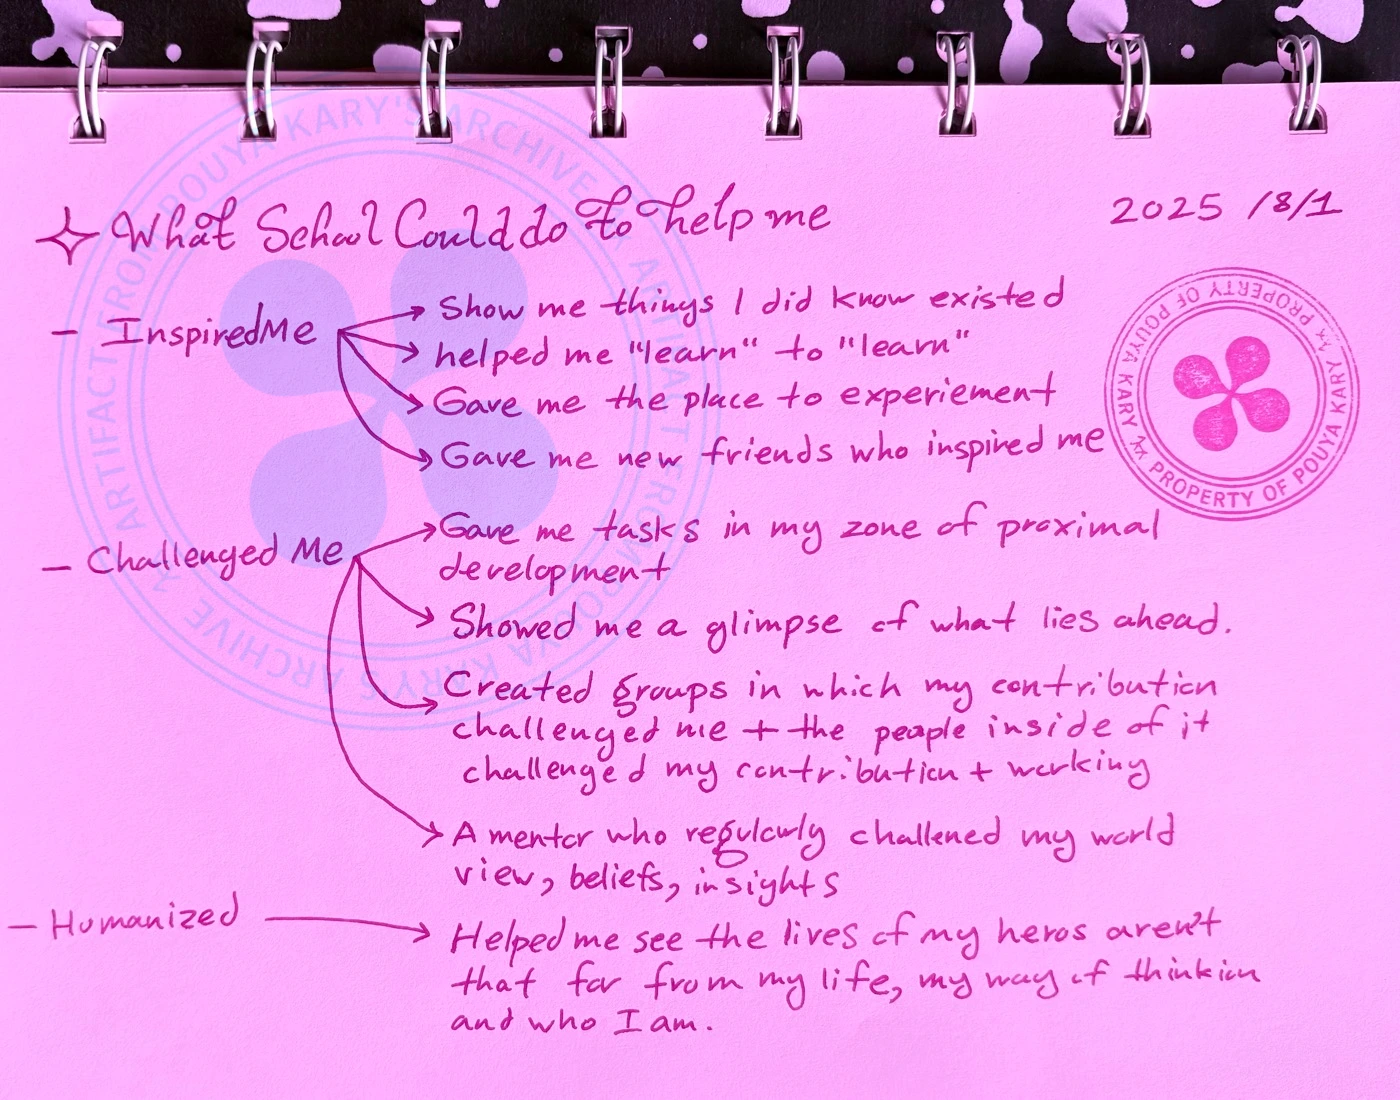 What School Could do to help me
2025 /8/1
- InspiredMe
Show me things I did know existed
helped me "learn" to "learn"
Gave me the place to experiement
Gave me new friends who inspired me
- Challenged Me
Gave me tasks in my zone of proximal
development
Showed me a glimpse of what lies ahead.
Created groups in which my contribution
challenged me + the people inside of it
challenged my contribution + working
A mentor who regularly challened my world
view, beliefs, insights
- Humanized
Helped me see the lives of my heros aren't
that far from my life, my way of thinkin
and who I am.
PROPERTY OF POUYA KARY
PROPERTY OF POUYA KARY
ARTIFACT FROM POUYA KARY'S ARCHIVE
ARTIFACT FROM POUYA KARY'S ARCHIVE